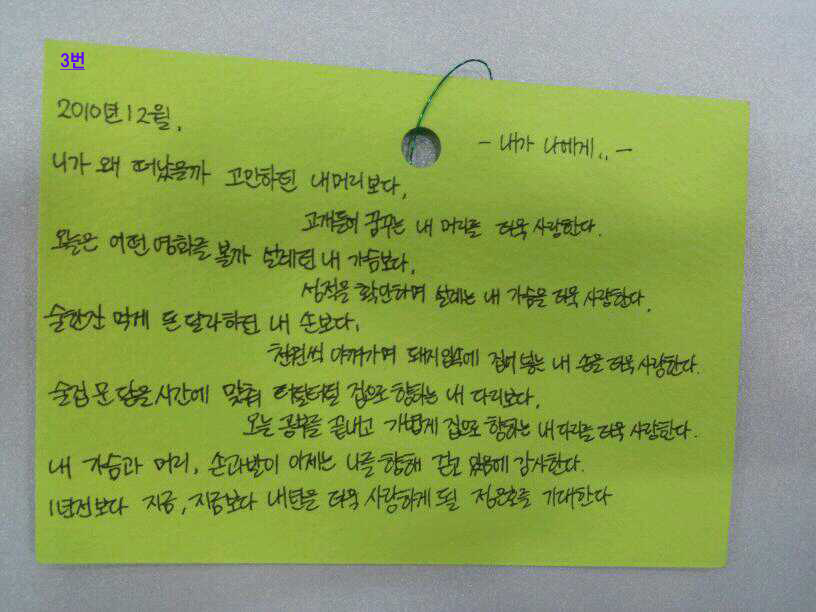 3번
2010년 12월.
- 내가 나에게.. -
니가 왜 떠났을까 고민하던 내머리보다,
고개들어 꿈꾸는 내 머리를 더욱 사랑한다.
오늘은 어떤 영화를 볼까 설레던 내 가슴보다,
성적을 확인하며 설레는 내 가슴을 더욱 사랑한다.
술한잔 먹게 돈 달라하던 내 손보다,
천원씩 아껴가며 돼지입속에 집어 넣는 내 손을 더욱 사랑한다.
술집 문 닫을시간에 맞춰 터덜터덜 집으로 향하는 내 다리보다,
오늘 공부를 끝내고 가볍게 집으로 향하는 내다리를 더욱 사랑한다.
내 가슴과 머리, 손과발이 이제는 나를 향해 걷고 있음에 감사한다.
1년전보다 지금, 지금보다 내년을 더욱 사랑하게 될 정은호를 기대한다